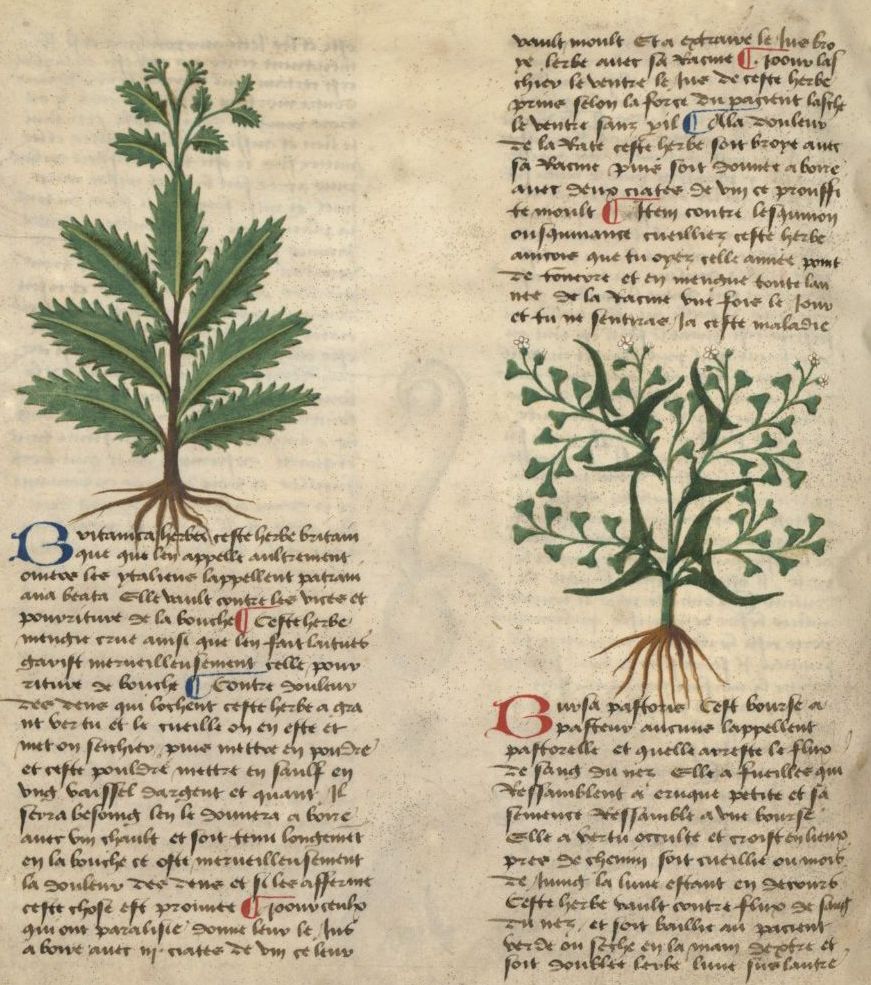 Britanica herba ceste herbe britani
que que len appelle aultrement
les ytaliens lappellent patrani
ana beata Elle vault contre les vices et
pourriture de la bouche ¶ Ceste herbe
mengie crue ainsi que len fait laitues
garist merueilleusement celle pour
riture de bouche ¶ Contre douleur
des dens qui lochent ceste herbe a gra
nt vertu et le cueille on en este et
met on seichier puis mettre en pouldre
et ceste pouldre mettre en saulf en
vng vaissel dargent et quant Il
serra besoing len le donnera a boire
auec vin chault et soit tenu longemet
en la bouche ce oste merueilleusement
la douleur des dens et si les afferme
ceste chose est prouuee ¶ pour ceulx
qui ont paralisie donne leur le Jus
a boire auec iij ciates de vin ce leur
vault moult Et a extraire le Jus bro
ye lerbe auec sa Racine ¶ pour las
chier le ventre le Jus de ceste herbe
prins selon la force du pacient lasche
le ventre sans pil ¶ A la douleur
de la Rate ceste herbe soit broye auec
sa Racine puis soit donnee a boire
auec deux ciates de vin ce prouffi
te moult ¶ Item contre lesquinon
ou squinance cueilliez ceste herbe
aincois que tu oyez celle annee point
de tonerre et en mengue toute lan
nee de la Racine vne fois le Jour
et tu ne sentiras Ja ceste maladie
Bursa pastoris Cest bourse a
pasteur aucuns lappellent
pastorelle et quelle arreste le flux
de sang du nez Elle a fueilles qui
Ressamblent a eruque petite et sa
semence Ressamble a vne bourse
Elle a vertu occulte et croist en lieux
pres de chemin soit cueillie ou mois
de Juing la lune estant en decours
Ceste herbe vault contre flux de sang
du nez et soit baillie au pacient
verde ou seche en la main dextre et
soit doublee lerbe lune sus lautre